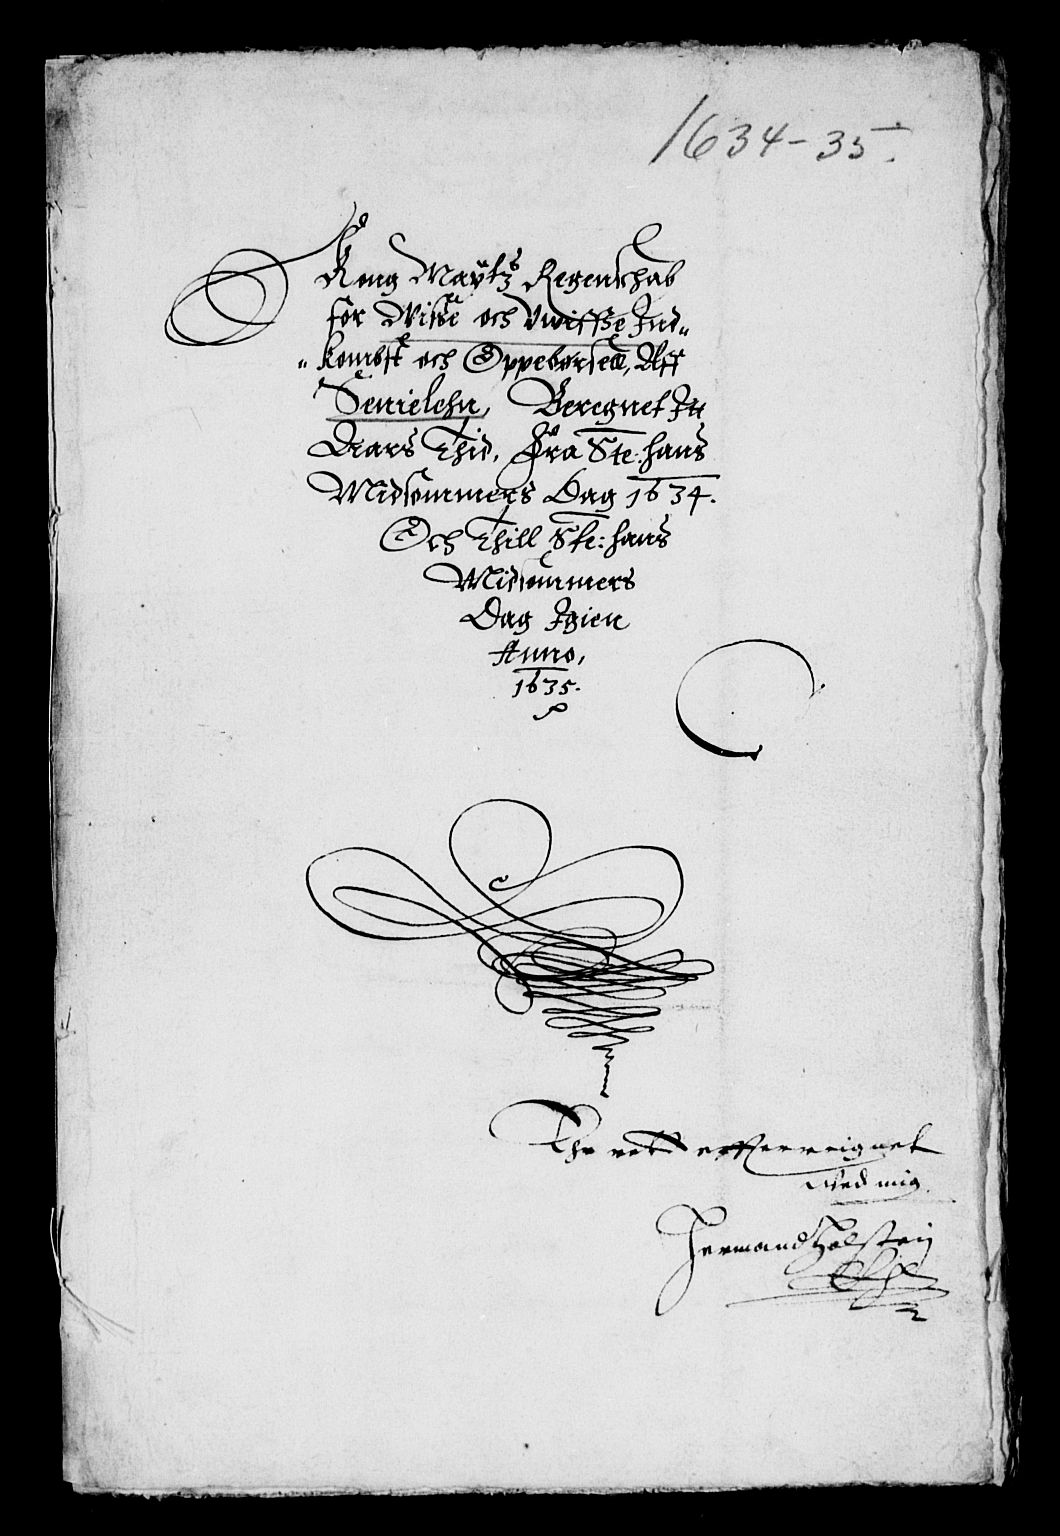 1634-35.
Kong Maÿtz Regenschab
for Visse och Vwisse Ind„
„kombst och Oppebørsell, Aff
Senielehn, Beregnet Jtt
Aars Thid, Fra Ste: hans
Midsommers Dag 1634.
Och Thill Ste: hans
Midsommers
Dag Igien
Anno,
1635.
Ehr rett offuerreignet
Wed mig
Hermand Holstein